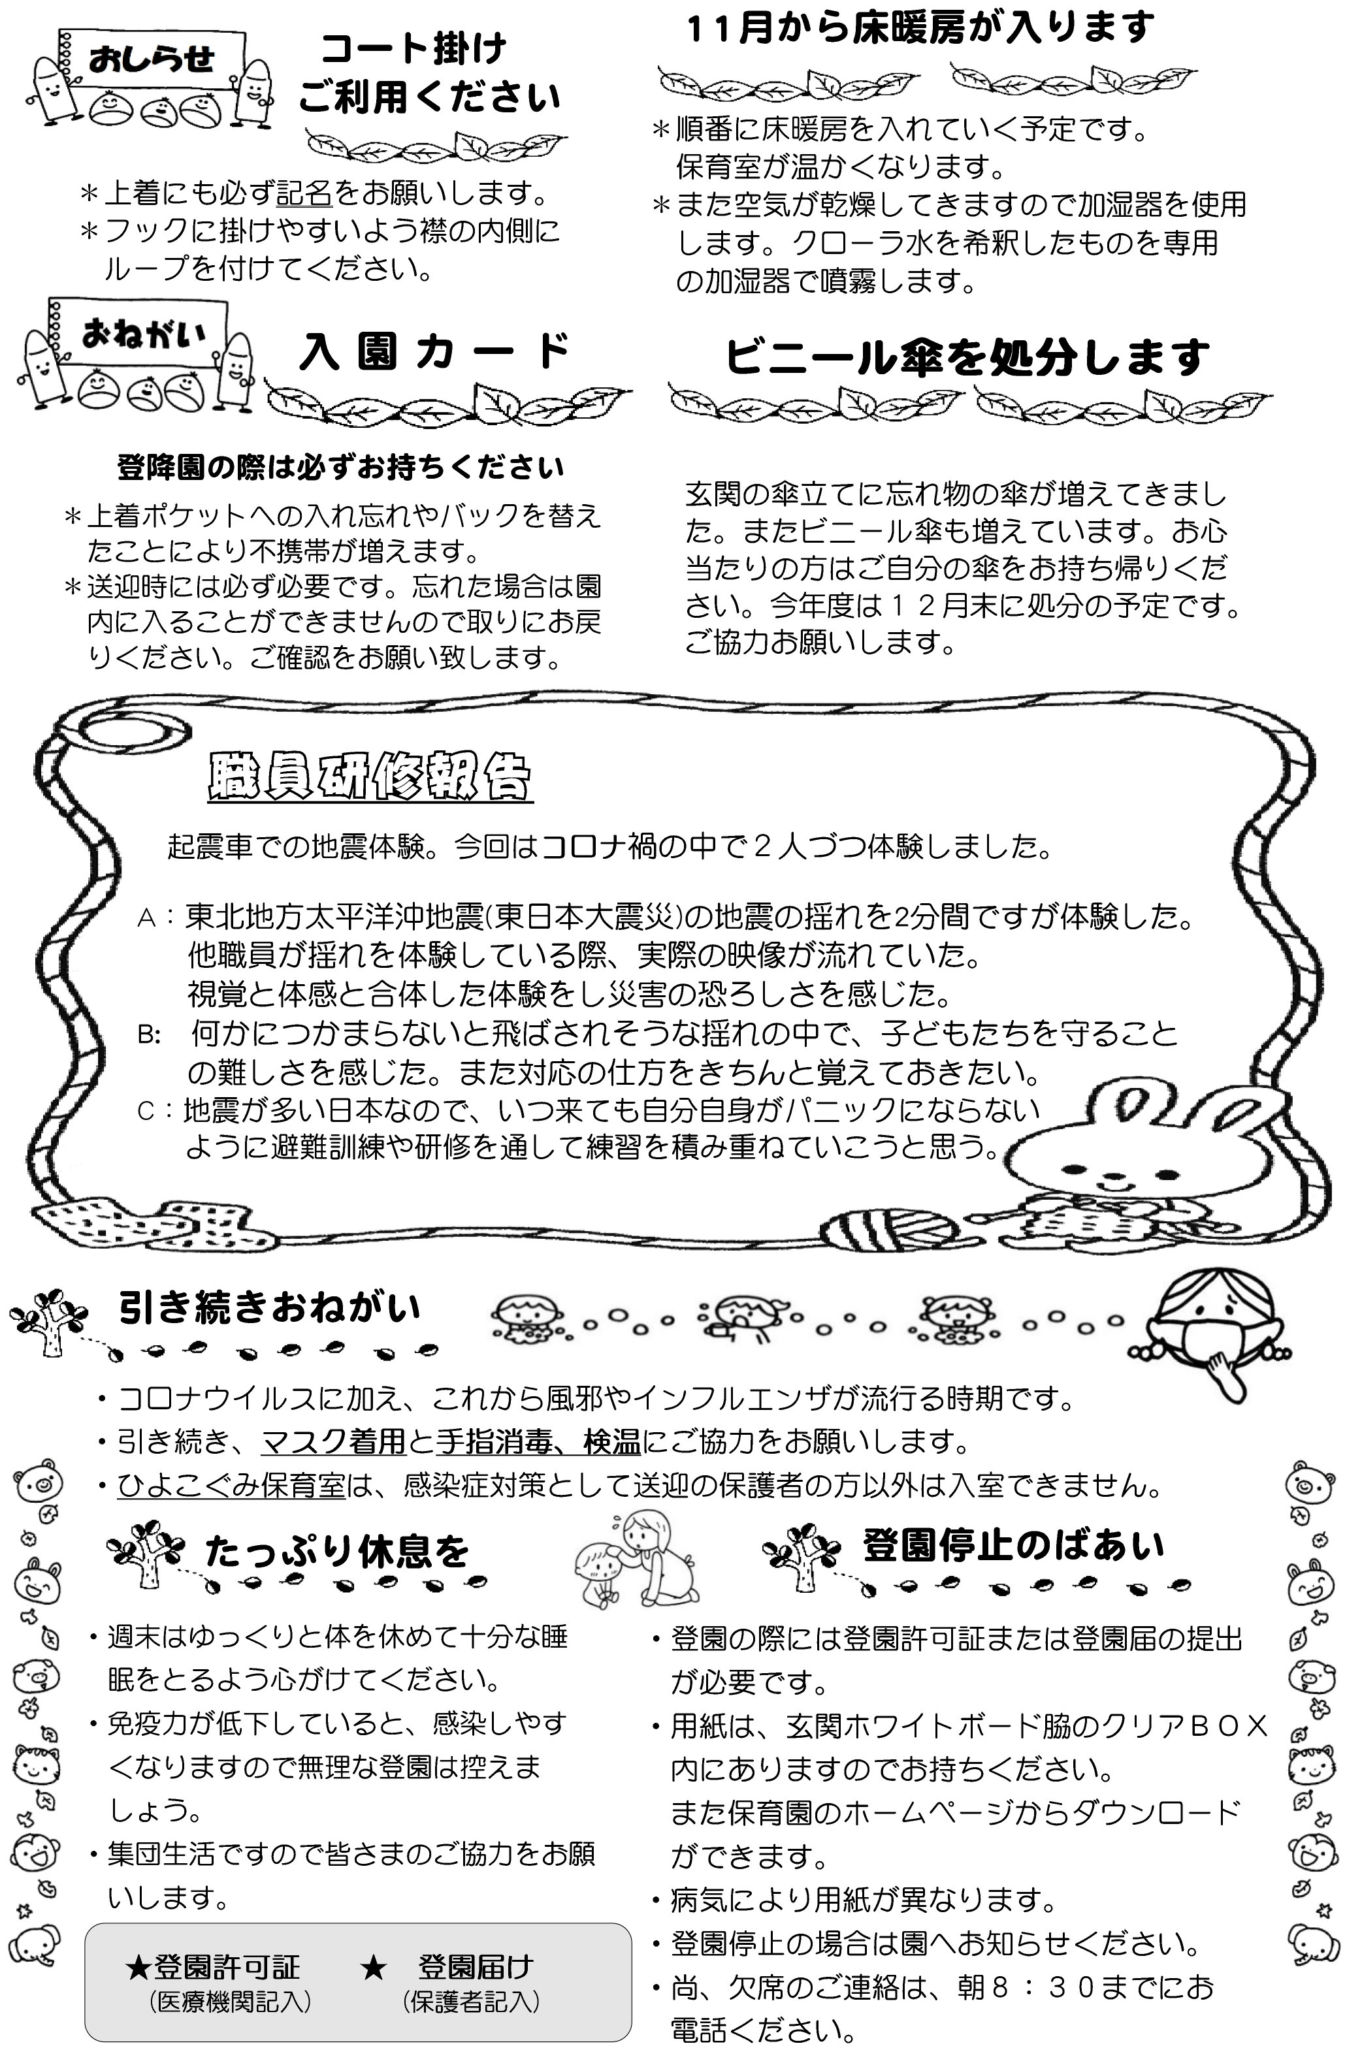 おしらせ
コート掛け
ご利用ください
＊上着にも必ず記名をお願いします。
＊フックに掛けやすいよう襟の内側に
ループを付けてください。
11月から床暖房が入ります
＊順番に床暖房を入れていく予定です。
保育室が温かくなります。
＊また空気が乾燥してきますので加湿器を使用
します。クローラ水を希釈したものを専用
の加湿器で噴霧します。
おねがい
入園カード
登降園の際は必ずお持ちください
＊上着ポケットへの入れ忘れやバックを替え
たことにより不携帯が増えます。
＊送迎時には必ず必要です。忘れた場合は園
内に入ることができませんので取りにお戻
りください。ご確認をお願い致します。
ビニール傘を処分します
玄関の傘立てに忘れ物の傘が増えてきまし
た。またビニール傘も増えています。お心
当たりの方はご自分の傘をお持ち帰りくだ
さい。今年度は１２月末に処分の予定です。
ご協力お願いします。
職員研修報告
起震車での地震体験。今回はコロナ禍の中で２人づつ体験しました。
A：東北地方太平洋沖地震(東日本大震災)の地震の揺れを2分間ですが体験した。
他職員が揺れを体験している際、実際の映像が流れていた。
視覚と体感と合体した体験をし災害の恐ろしさを感じた。
B:　何かにつかまらないと飛ばされそうな揺れの中で、子どもたちを守ること
の難しさを感じた。また対応の仕方をきちんと覚えておきたい。
C：地震が多い日本なので、いつ来ても自分自身がパニックにならない
ように避難訓練や研修を通して練習を積み重ねていこうと思う。
引き続きおねがい
・コロナウイルスに加え、これから風邪やインフルエンザが流行る時期です。
・引き続き、マスク着用と手指消毒、検温にご協力をお願いします。
・ひよこぐみ保育室は、感染症対策として送迎の保護者の方以外は入室できません。
たっぷり休息を
・週末はゆっくりと体を休めて十分な睡
眠をとるよう心がけてください。
・免疫力が低下していると、感染しやす
くなりますので無理な登園は控えま
しょう。
・集団生活ですので皆さまのご協力をお願
いします。
★登園許可証　★　登園届け
（医療機関記入）　（保護者記入）
登園停止のばあい
・登園の際には登園許可証または登園届の提出
が必要です。
・用紙は、玄関ホワイトボード脇のクリアＢＯＸ
内にありますのでお持ちください。
また保育園のホームページからダウンロード
ができます。
・病気により用紙が異なります。
・登園停止の場合は園へお知らせください。
・尚、欠席のご連絡は、朝８：３０までにお
電話ください。